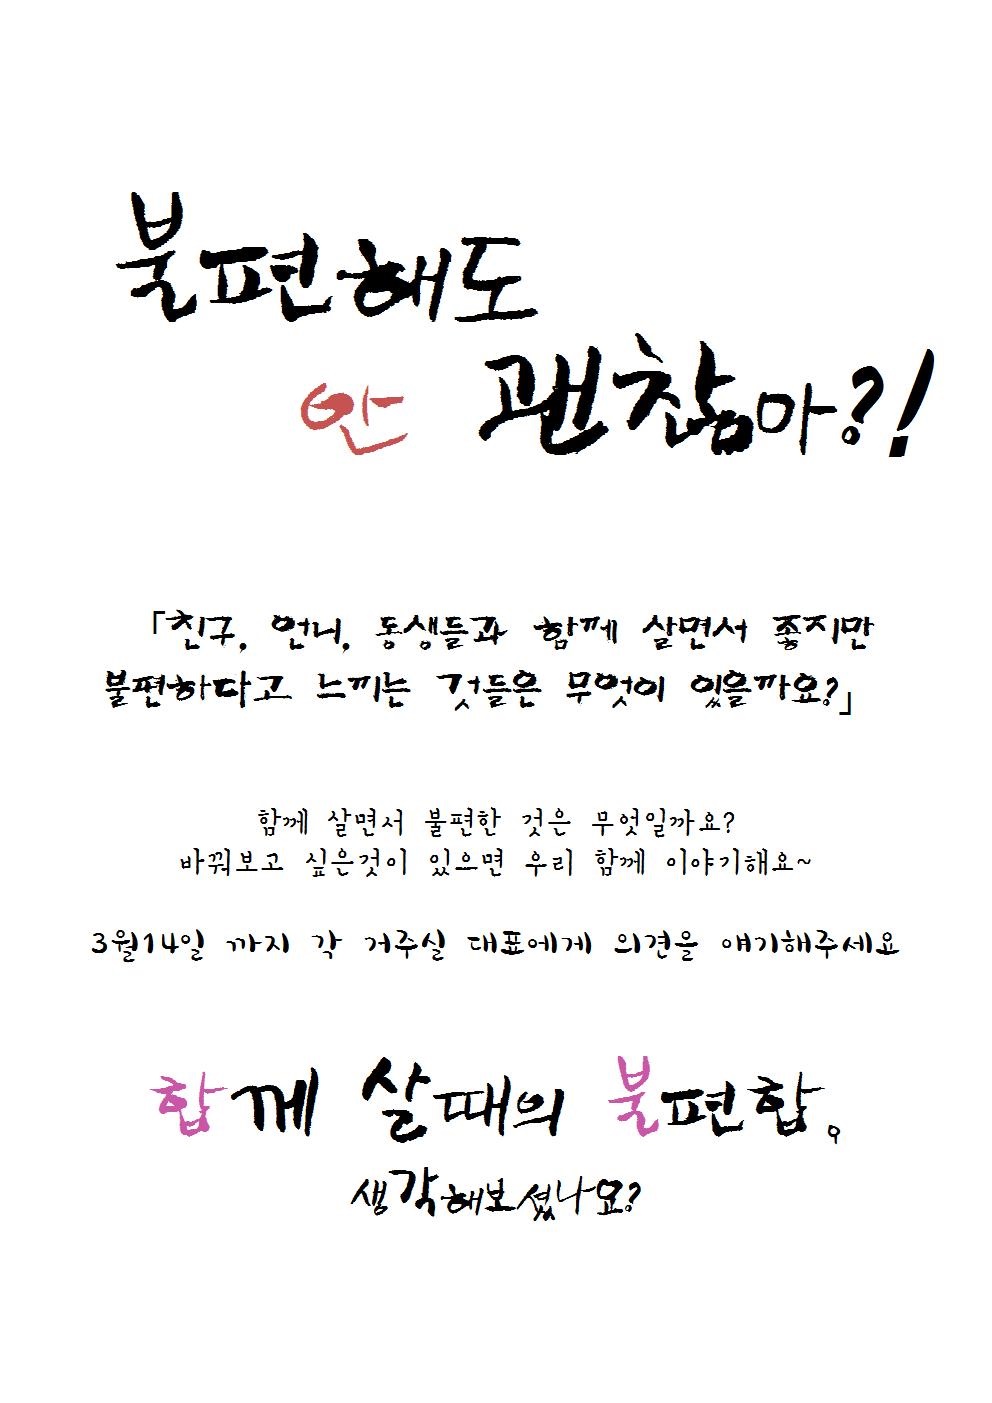 불편해도
안 괜찮아?!
「친구, 언니, 동생들과 함께 살면서 좋지만
불편하다고 느끼는 것들은 무엇이 있을까요?」
함께 살면서 불편한 것은 무엇일까요?
바꿔보고 싶은것이 있으면 우리 함께 이야기해요~
3월14일 까지 각 거주실 대표에게 의견을 얘기해주세요
합께 살때의 불편합。
생각해보셨나요?